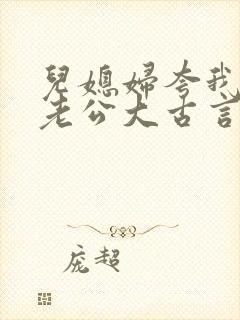 兒媳婦夸我
老公大古言
庞超